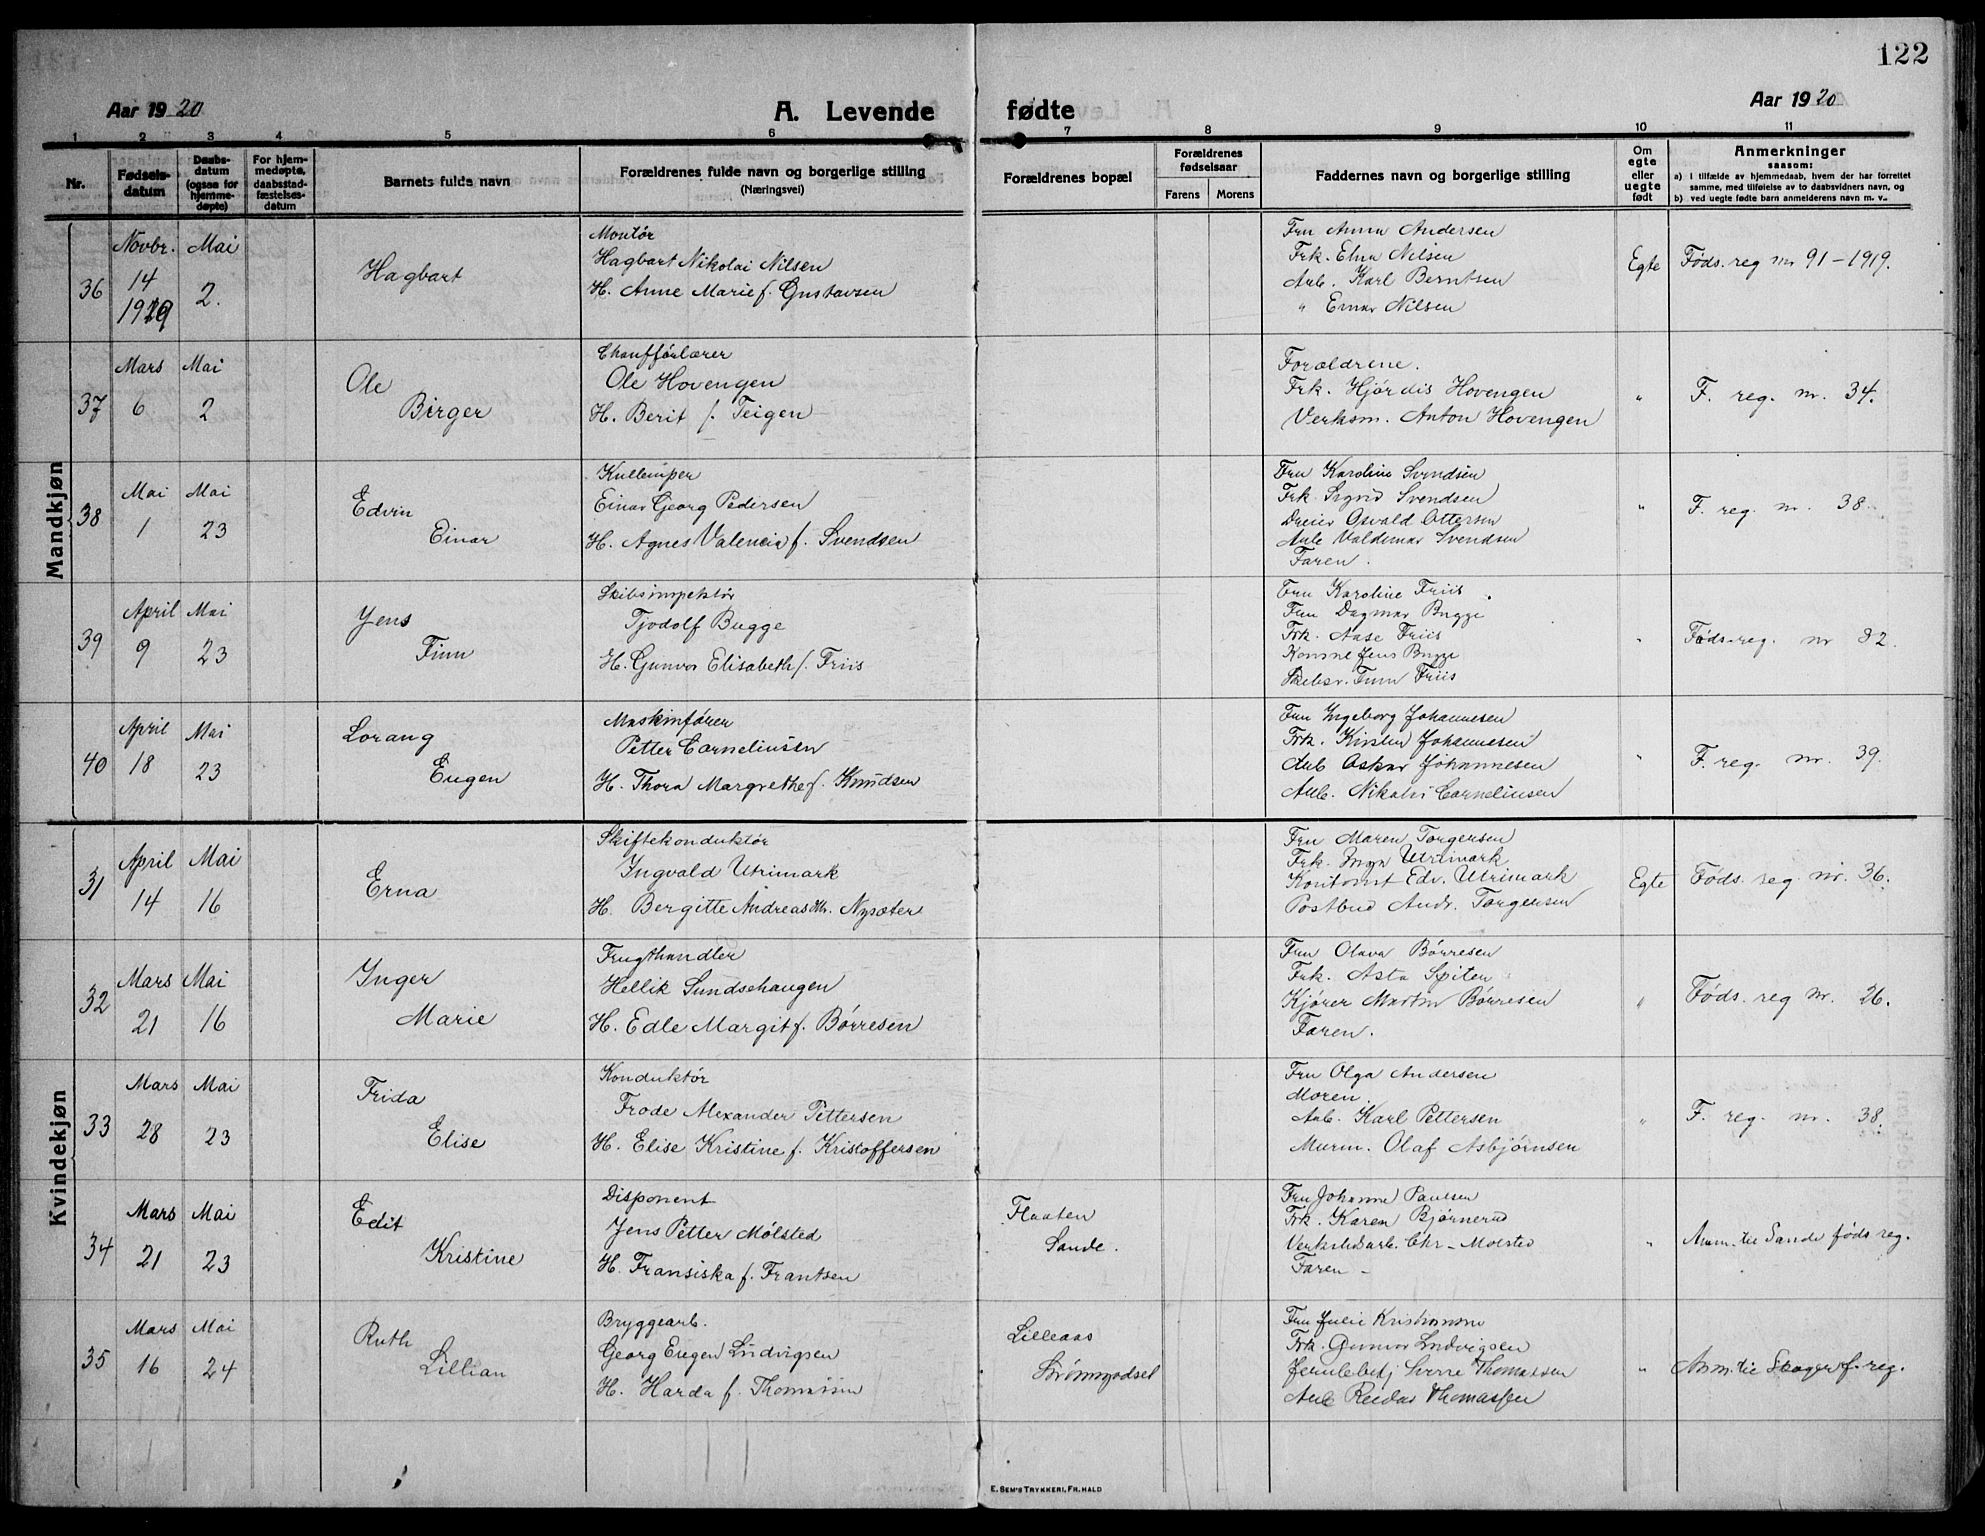 122
Aar 1920
A. Levende fødte
Aar 1920
1 2 3 4 5 6 7 8 9 10 11
Nr.
Fødsels-
datum
Daabs-
datum
(ogsaa for
hjemme-
døpte)
For hjem-
medøpte,
daabsstad-
fæstelses-
datum
Barnets fulde navn
Forældrenes fulde navn og borgerlige stilling
(Næringsvei)
Forældrenes bopæl
Forældrenes
fødselsaar
Farens Morens
Faddernes navn og borgerlige stilling
Om
egte
eller
uegte
født
Anmerkninger
saasom:
a) I tilfælde av hjemmedaab, hvem der har forrettet
samme, med tilføielse av to daabsvidners navn, og
b) ved uegte fødte barn anmelderens navn m. v..
Mandkjøn
36
Novbr.
14
1919
Mai
2.
Hagbart
Montør
Hagbart Nikolai Nilsen
H. Anne Marie f. Gustavsen
Fru Anna Andersen
Frk. Elna Nilsen
Arb. Karl Berntsen
" Einar Nilsen
Egte
Føds. reg nr 91-1919.
37
Mars
6
Mai
2
Ole
Birger
Chaufførlærer
Ole Hovengen
H. Berit f. Teigen
Forældrene.
Frk. Hjørdis Hovengen
Verksm. Anton Hovengen
"
F. reg. nr. 34.
38
Mai
1
Mai
23
Edvin
Einar
Kullemper
Einar Georg Pedersen
H. Agnes Valencia f. Svendsen
Fru Karoline Svendsen
Frk. Sigrid Svendsen
Dreier Osvald Ottersen
Arb Valdemar Svendsen
Faren.
"
F. reg. nr. 38.
39
April
9
Mai
23
Jens
Finn
Skibsinspektør
Tjodolf Bugge
H. Gunvor Elisabeth f. Friis
Fru Karoline Friis
Fru Dagmar Bugge
Frk. Aase Friis
Jens Bugge
Skibsr. Finn Friis
"
Føds. reg. nr 32.
40
April
18
Mai
23
Lorang
Eugen
Maskinfører
Petter Corneliusen
H. Thora Margrethe f. Knudsen
Fru Ingeborg Johannesen
Frk. Kirsten Johannesen
Arb Oskar Johannesen
Arb. Nikolai Corneliusen
"
F. reg. nr. 39.
Kvindekjøn
31
April
14
Mai
16
Erna
Skiftekonduktør
Ingvald Utrimark
H. Bergitte Andrea Nysæter
Fru Maren Torgersen
Frk. Inga Utrimark
Kontorist Edv. Utrimark
Postbud Andr. Torgersen
Egte
Føds. reg. nr. 36.
32
Mars
21
Mai
16
Inger
Marie
Frugthandler
Hellik Sundsehaugen
H. Edle Margit f. Børresen
Fru Olava Børresen
Frk. Asta Spiten
Kjører Martin Børresen
Faren.
"
Føds. reg nr. 26.
33
Mars
28
Mai
23
Frida
Elise
Konduktør
Frode Alexander Pettersen
H. Elise Kristine f. Kristoffersen
Fru Olga Andersen
Moren.
Arb. Karl Pettersen
Murm. Olaf Asbjørnsen
"
F. reg. nr. 38.
34
Mars
21
Mai
23
Edit
Kristine
Disponent
Jens Petter Mølsted
H. Fransiska f. Frantsen
Flaaten
Sande.
Fru Johanne Paulsen
Frk. Karen Bjørnerud
Verkstedsarb. Chr. Mølsted
Faren
"
Anm. til Sande føds reg.
35
Mars
16
Mai
24
Ruth
Lillian
Bryggearb.
Georg Eugen Ludvigsen
H. Harda f. Thomassen
Lilleaas
Strømmgodset
Fru Julie Kristiansen
Frk. Gunvor Ludvigsen
Jernbebetj Sverre Thomassen
Arb Reidar Thomassen
"
Anm. til Skoger f. reg.
E. SEM'S TRYKKERI, FR.HALD